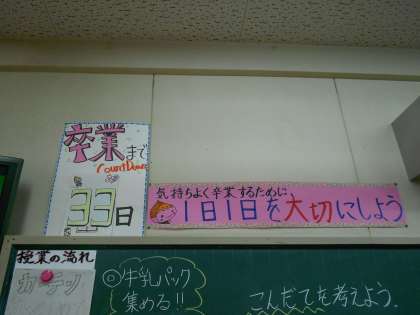 卒業まで
CountDown
33日
気持ちよく卒業するために、
1日1日を大切にしよう
授業の流れ
カチッ
◎牛乳パック
集める!!
こんだてを考えよう。